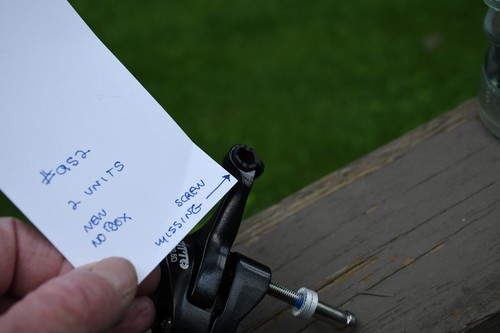 #952
2 UNITS
NEW
NO BOX
SCREW
MISSING